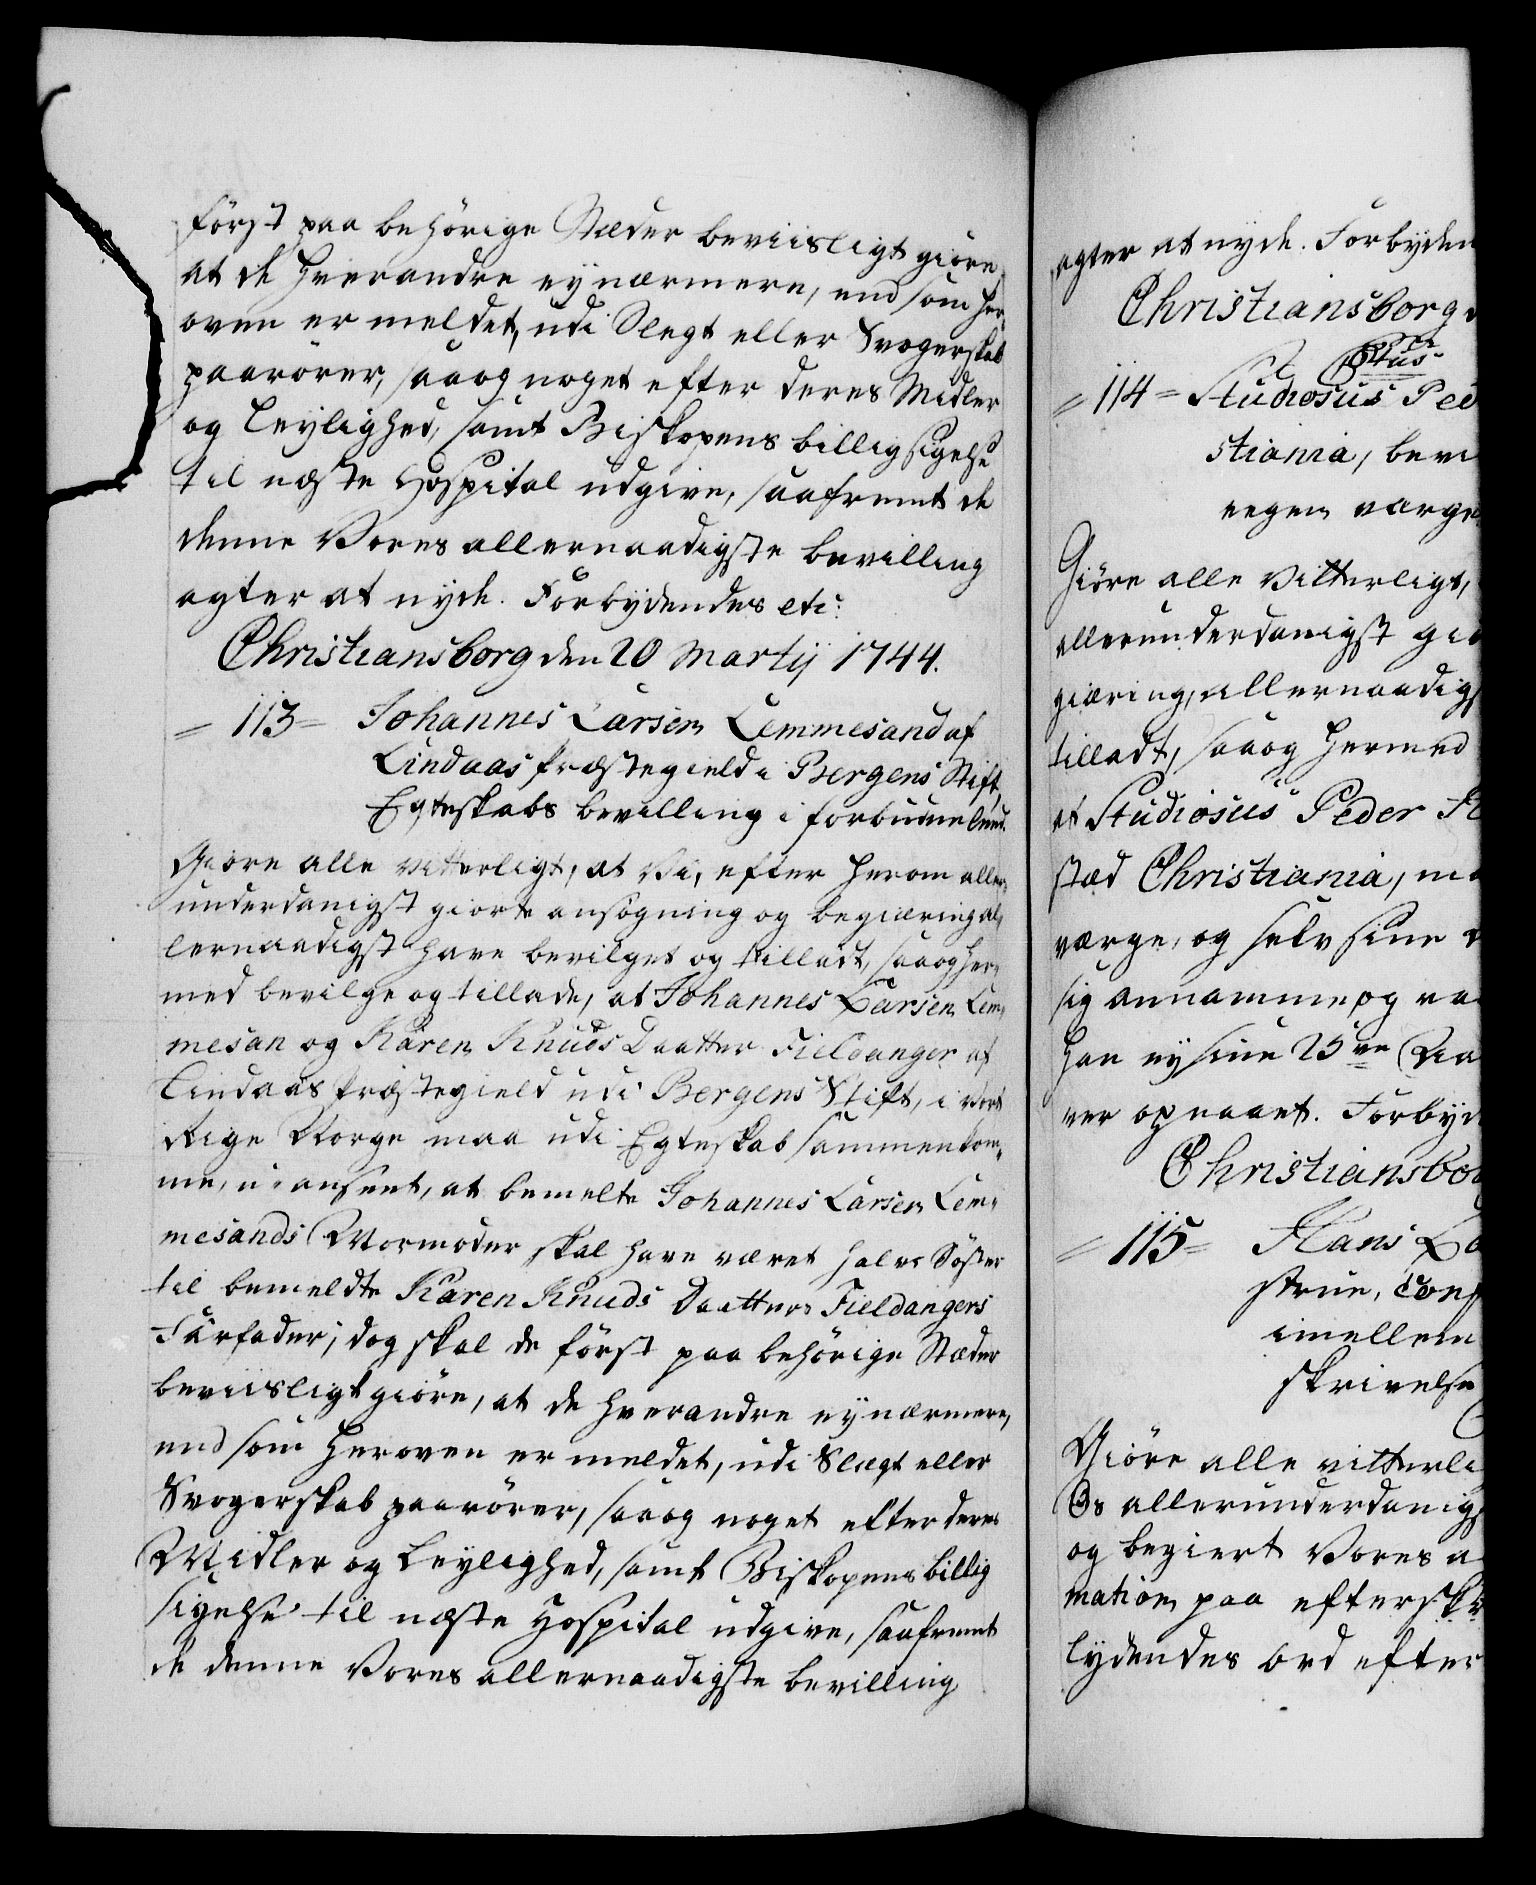 först paa behörige Stæder beviisligt giöre
at de hverandre ey nærmere, end som her-
oven er meldet, udi Slegt eller Svogerskab
paarörer, saa og noget efter deres Midler
og Leylighed, samt Biskopens billigsigelse
til næste Hospital udgive, saafremt de
denne Vores allernaadigste bevilling
agter at nyde. Forbydendes etc:
Christiansborg den 20 Martij 1744.
= 113 = Johannes Larsen Lemmesand af
Lindaas Præstegield i Bergens Stift,
Egteskabs bevilling i forbudne Leed.
Giöre alle vitterligt, at Vi, efter herom aller-
underdanigst giorte ansögning og begiæring al-
lernaadigst have bevilget og tilladt, saa og her-
med bevilge og tillade, at Johannes Larsen Lem-
mesan og Karen Knuds Daatter Fieldanger af
Lindaas Præstegield udi Bergens Stift, i vort
Rige Norge maa udi Egteskab sammenkom-
me, uanseet, at bemelte Johannes Larsen Lem-
mesands Mormoder skal have været halv Söster
til bemeldte Karen Knuds Daatters Fieldangers
Farfader; dog skal de först paa behörige Stæder
beviisligt giöre, at de hverandre ey nærmere,
end som heroven er meldet, udi Slægt eller
Svogerskab paarörer, saa og noget efter deres
Midler og Leylighed, samt Biskopens billig
sigelse til næste Hospital udgive, saafremt
de denne Vores allernaadigste bevilling
agter at nyde. Forbyden
Christiansborg
= 114 = Studiosus Ped
stiania, bevi
eegen værge
Giöre alle vitterligt,
allerunderdanigst gio
giæring, allernaadigs
tilladt, saa og hermed
at Studiosus Peder
stad Christiania, ma
værge, og selv sine
sig annamme, og
han ey sine 25 ve Aa
ver opnaaet. Forbyd
Christiansbo
= 115 = Hans La
strue, Conf
imellem
skrivelse
Giöre alle vitterli
Os allerunderdanigs
og begiert Vores a
mation paa efterskr
lydendes ord efter